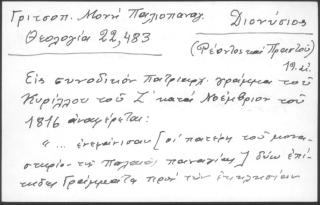 Γριτσοπ. Μονή Παλιοπαναγ.
Θεολογία 22, 483
Διονύσιος
(Ρέοντος καί Πραστοῦ)
19. αἰ.
Εἰς συνοδικόν πατριαρχ. γράμμα τοῦ
Κυρίλλου τοῦ Ζ΄ κατά Νοέμβριον τοῦ
1816 ἀναφέρεται:
"... [οἱ πατέρες τοῦ μονα-
στηρίου τῆς Παλαιᾶς Παναγίας] δύω ἐπί-
γράμματα πρός τήν ἐκκλησίαν